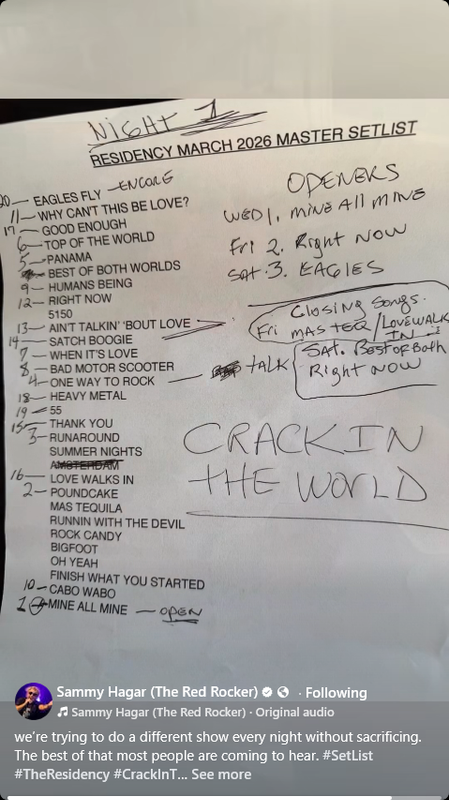 NIGHT 1
RESIDENCY MARCH 2026 MASTER SETLIST
20 — EAGLES FLY — ENCORE
11 — WHY CAN'T THIS BE LOVE?
17 — GOOD ENOUGH
6 — TOP OF THE WORLD
5 — PANAMA
BEST OF BOTH WORLDS
9 — HUMANS BEING
12 — RIGHT NOW
5150
13 — AIN'T TALKIN' 'BOUT LOVE
14 — SATCH BOOGIE
7 — WHEN IT'S LOVE
8 — BAD MOTOR SCOOTER
4 — ONE WAY TO ROCK — TALK
18 — HEAVY METAL
19 — 55
15 — THANK YOU
3 — RUNAROUND
SUMMER NIGHTS
AMSTERDAM
16 — LOVE WALKS IN
2 — POUNDCAKE
MAS TEQUILA
RUNNIN WITH THE DEVIL
ROCK CANDY
BIGFOOT
OH YEAH
FINISH WHAT YOU STARTED
10 — CABO WABO
1 MINE ALL MINE — OPEN
OPENERS
WED 1. MINE All MINE
Fri 2. Right NOW
Sat. 3. EAGLES
Closing Songs.
Fri MAS TEQ/LOVEWALK IN
Sat. Best of Both
Right NOW
CRACK IN
THE WORLD
Sammy Hagar (The Red Rocker) · Following
Sammy Hagar (The Red Rocker) · Original audio
we're trying to do a different show every night without sacrificing.
The best of that most people are coming to hear. #SetList
#TheResidency #CrackInT... See more